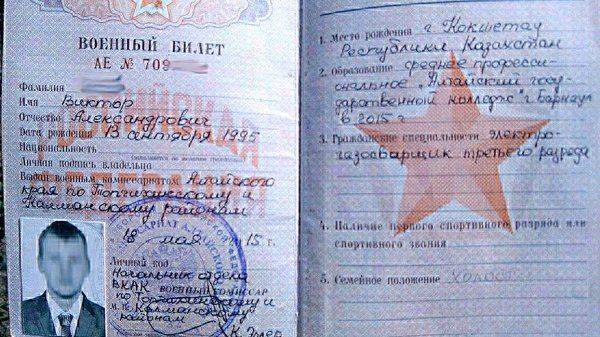 ВОЕННЫЙ БИЛЕТ
АЕ № 709
Фамилия
Имя Виктор
Отчество Александрович
Дата рождения 13 сентября 1995
Национальность
Личная подпись владельца
Выдан военным комиссариатом Алтайского
края по Топчихинскому и
Калманскому районам
18 мая 2015 г.
Личный код
Начальник отдела
ВКАК ВОЕННЫЙ КОМИССАР
по Топчихинскому и
М.П. Калманскому
районам
1. Место рождения г. Кокшетау
Республики Казахстан
2. Образование среднее професси-
ональное "Алтайский госу-
дарственный колледж" г. Барнаул
в 2015 г
3. Гражданские специальности электро-
газосварщик третьего разряда
4. Наличие первого спортивного разряда или
спортивного звания
5. Семейное положение Холост